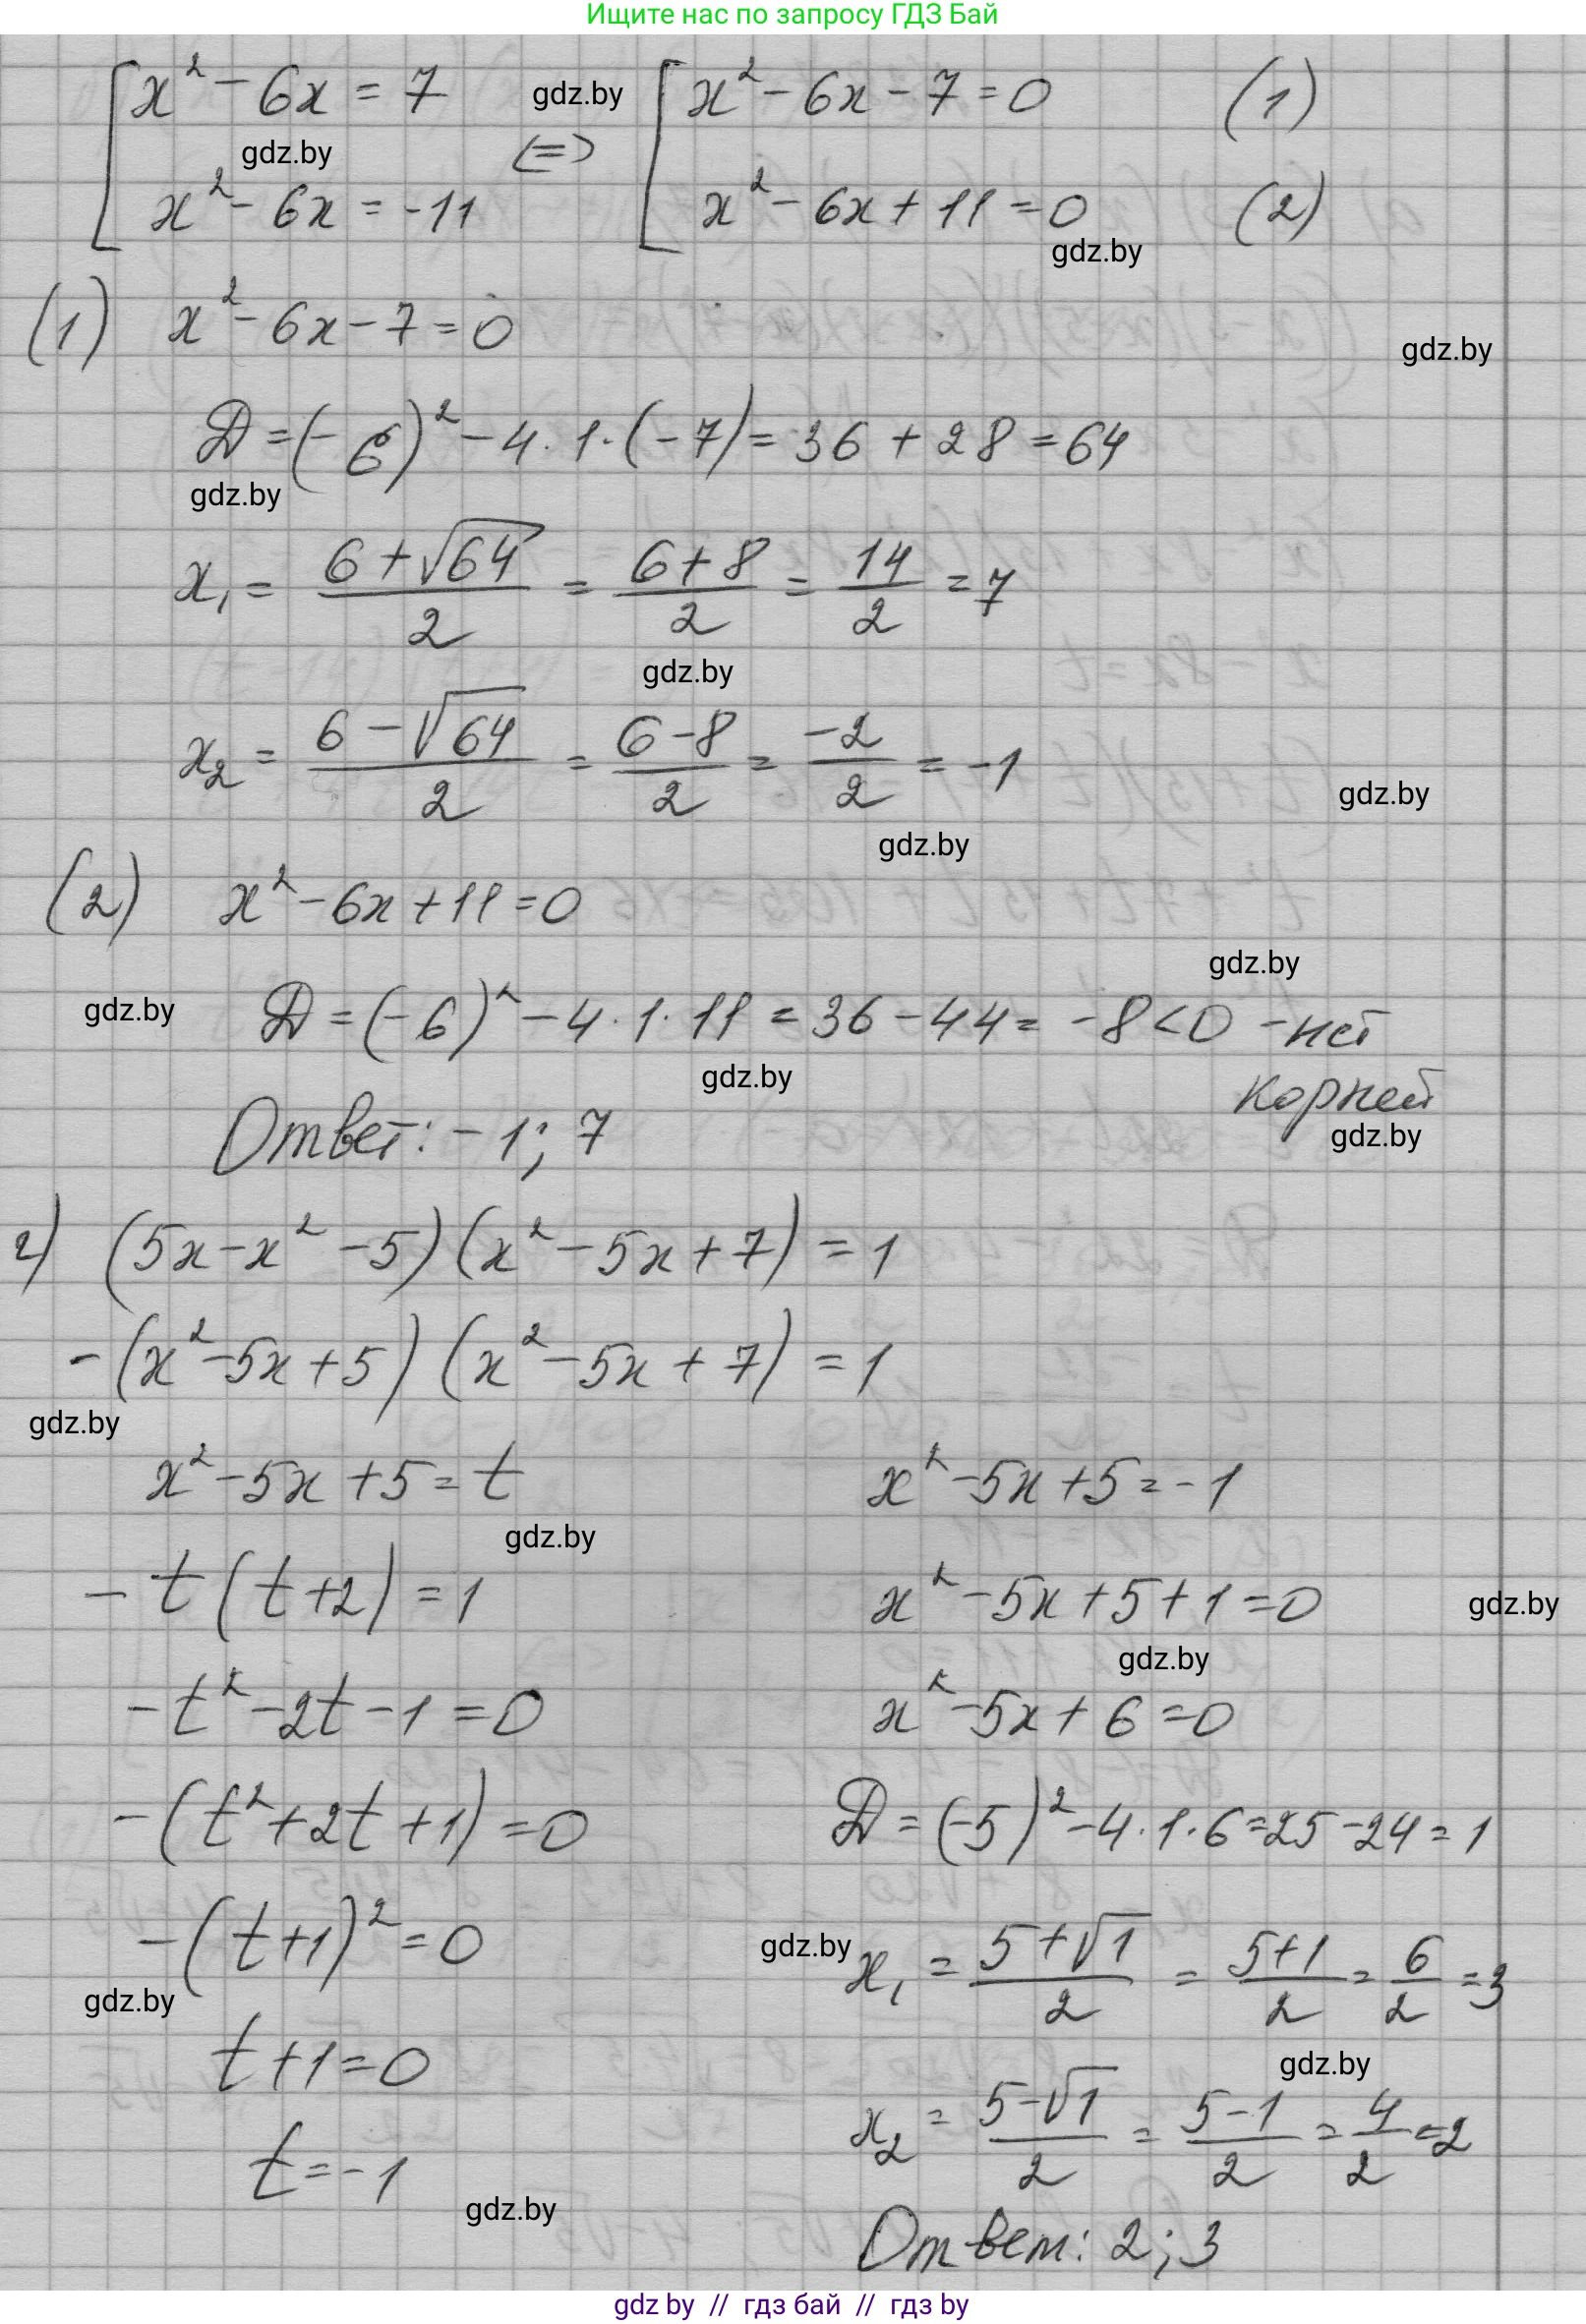 Ищите нас по запросу ГДЗ Бай
x² - 6x = 7 gdz.by x² - 6x - 7 = 0 (1)
gdz.by <=>
x² - 6x = -11 x² - 6x + 11 = 0 (2)
gdz.by
(1) x² - 6x - 7 = 0
gdz.by
D = (-6)² - 4·1·(-7) = 36 + 28 = 64
gdz.by
x₁ = (6 + √64)/2 = (6 + 8)/2 = 14/2 = 7
gdz.by
x₂ = (6 - √64)/2 = (6 - 8)/2 = -2/2 = -1
gdz.by
gdz.by
(2) x² - 6x + 11 = 0
gdz.by
gdz.by D = (-6)² - 4·1·11 = 36 - 44 = -8 < 0 - нет
gdz.by корней
Ответ: -1; 7
gdz.by
г) (5x - x² - 5)(x² - 5x + 7) = 1
-(x² - 5x + 5)(x² - 5x + 7) = 1
gdz.by
x² - 5x + 5 = t
gdz.by
-t(t + 2) = 1
-t² - 2t - 1 = 0
-(t² + 2t + 1) = 0
-(t + 1)² = 0
gdz.by
t + 1 = 0
t = -1
gdz.by
x² - 5x + 5 = -1
x² - 5x + 5 + 1 = 0 gdz.by
gdz.by
x² - 5x + 6 = 0
D = (-5)² - 4·1·6 = 25 - 24 = 1
gdz.by x₁ = (5 + √1)/2 = (5 + 1)/2 = 6/2 = 3
gdz.by
x₂ = (5 - √1)/2 = (5 - 1)/2 = 4/2 = 2
Ответ: 2; 3
gdz by // гдз бай // гдз by